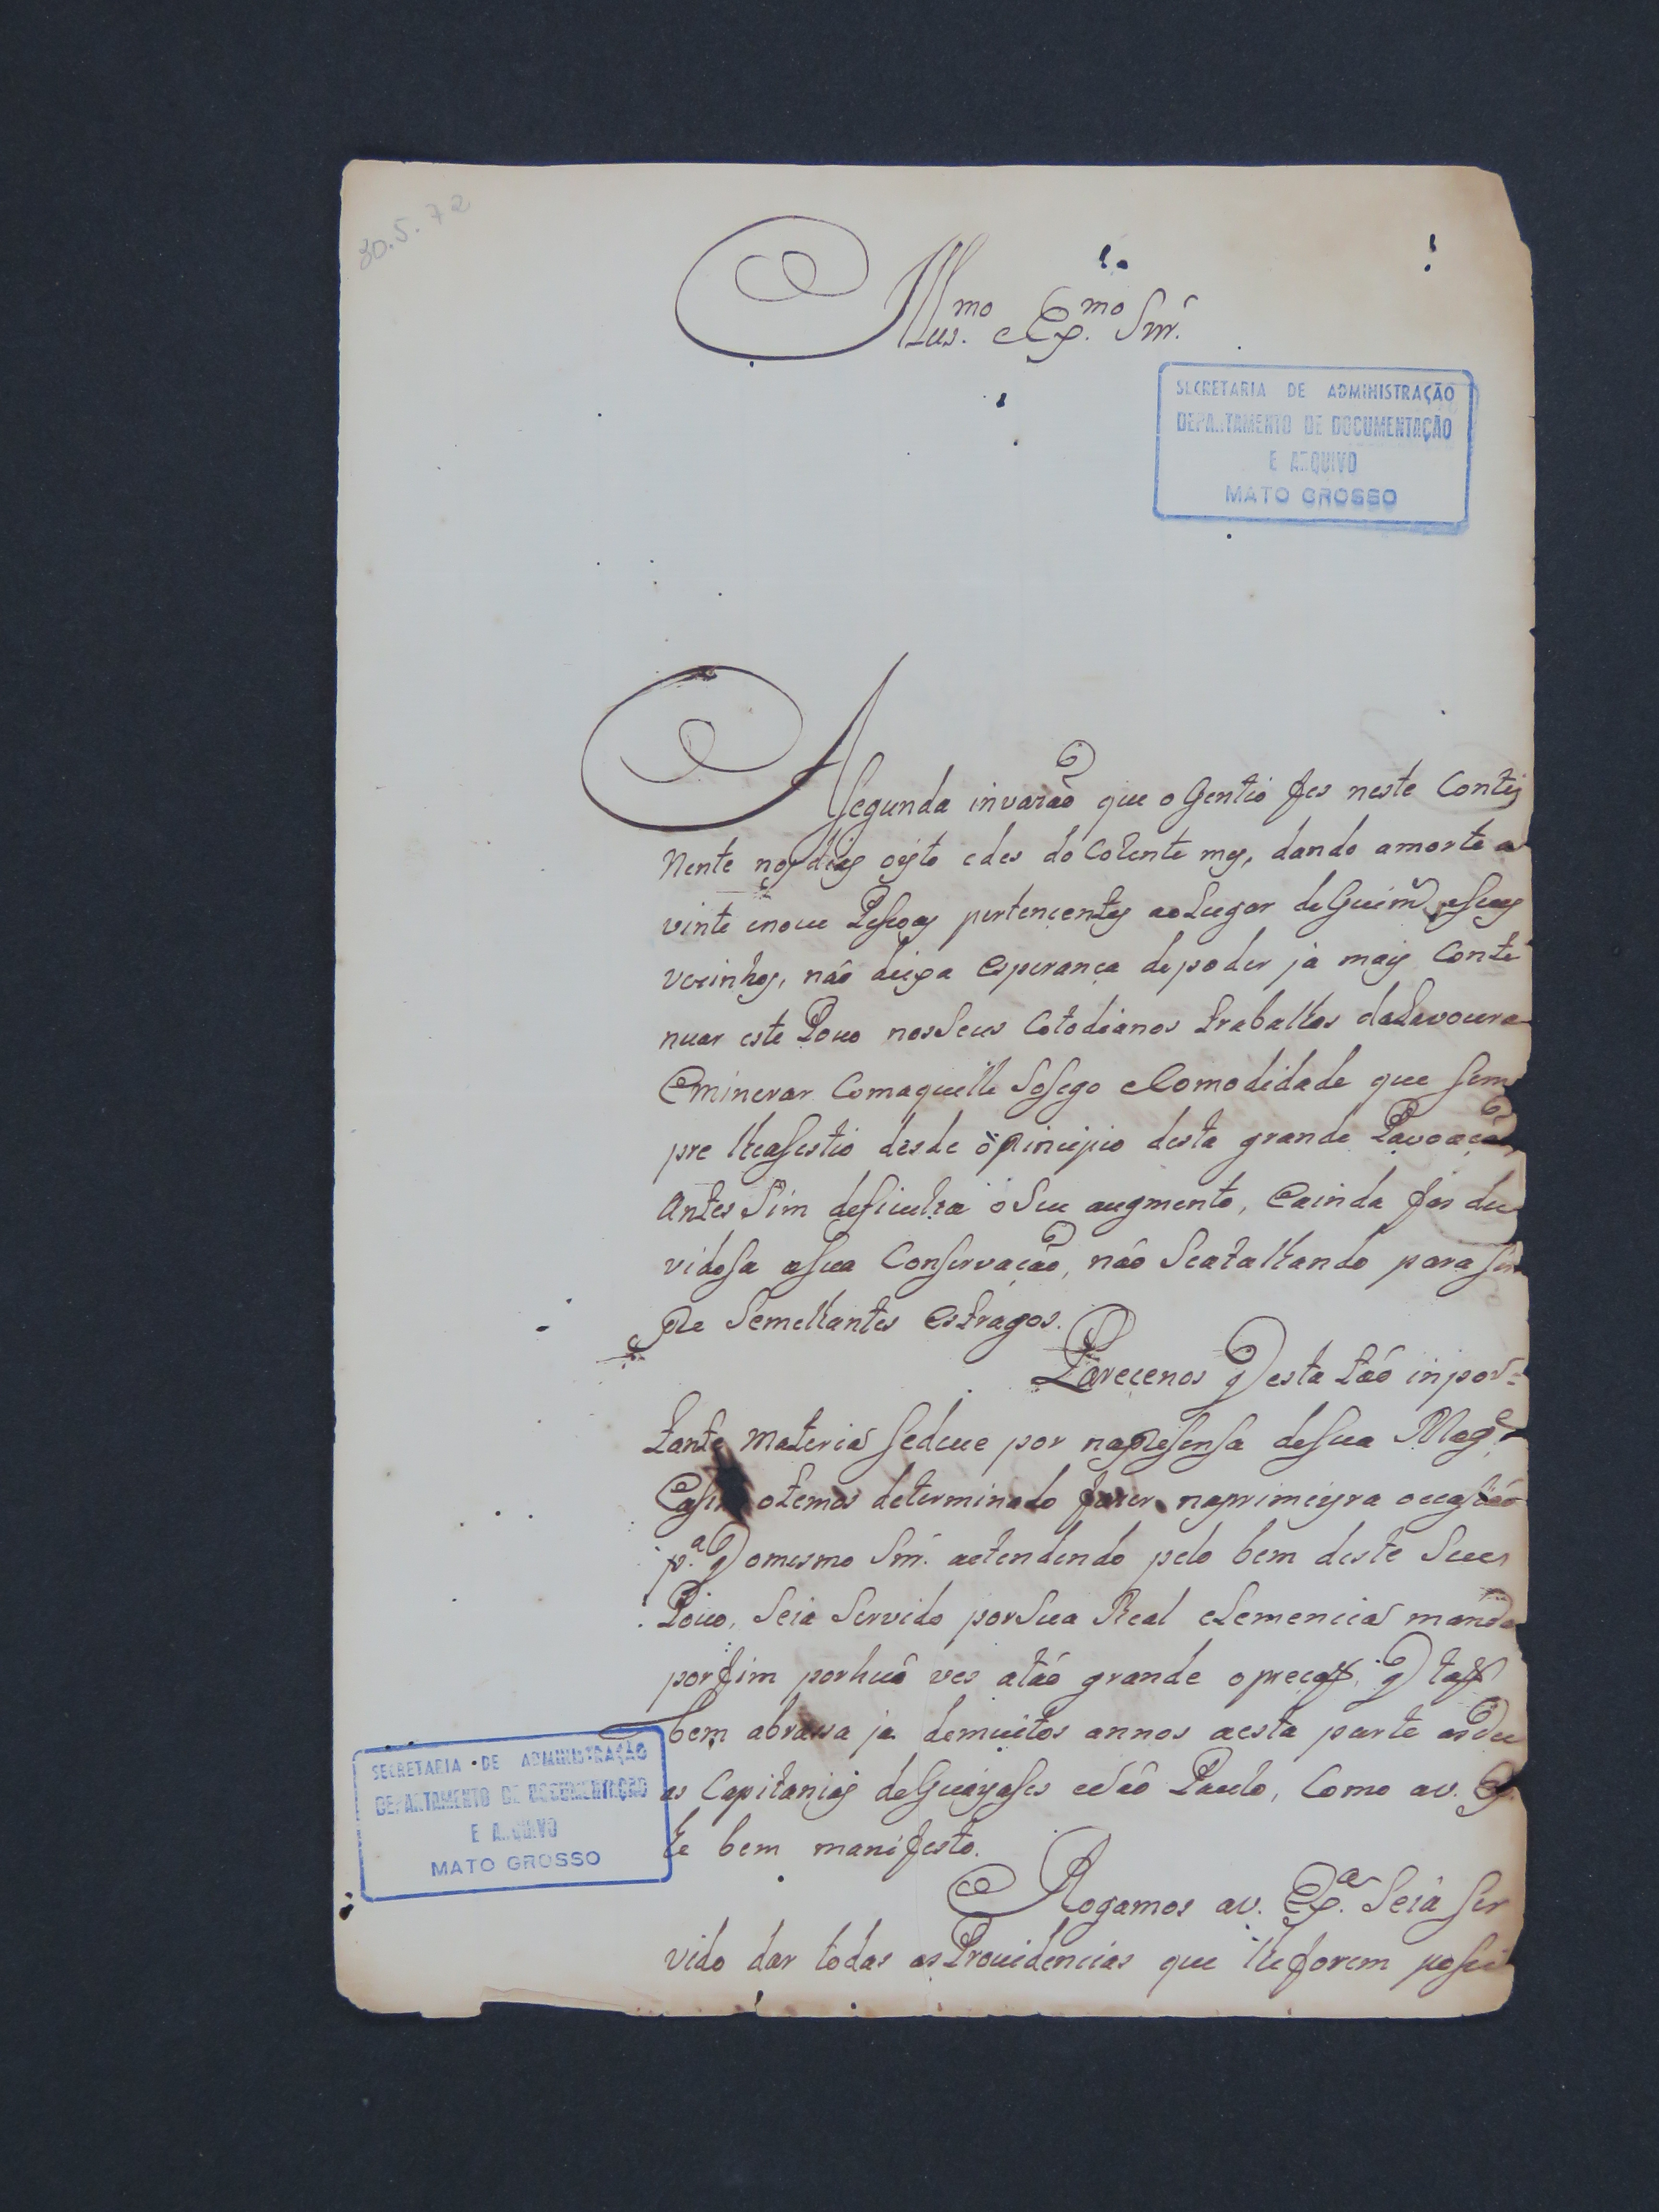 30.5.72
Illus.mo e Ex.mo Snr.
SECRETARIA DE ADMINISTRAÇÃO
DEPARTAMENTO DE DOCUMENTAÇÃO
E ARQUIVO
MATO GROSSO
A Segunda invazaõ que o Gentio fes neste Conti
nente nos dias oyto e des do Corente mes, dando amorte a
vinte enoue Pesoas pertencentes ao Lugar de Guim.es eseus
vezinhos, naõ deixa esperança depoder já mais Conti
nuar este Pouo nosSeus Cotodianos trabalhos daLavoura
Eminerar Comaquelle Sosego eComodidade que sem
pre lheasestio desde o principio desta grande Pavoaçaõ
Antes Sim deficulta o Seu augmento, Eainda fas du
vidosa asua Conservaçaõ, naõ Seatalhando para sem
pre Semelhantes estragos.
Parecenos q esta taõ inpor=
tante materia sedeue por napresensa desua Mag.e
Easim otemos determinado fazer naprimeyra occasiaõ
p.a q omesmo Snr. antendendo pelo bem deste Seu
Pouo, Seia Servido porSua Real clemencia manda
porfim porhuã ves ataõ grande opreçaõ, q taõ
bem abrassa ja demuitos annos aesta parte asdu
as Capitanias deGuayases eSaõ Paulo, Como av. Ex.
he bem manifesto.
SECRETARIA DE ADMINISTRAÇÃO
DEPARTAMENTO DE DOCUMENTAÇÃO
E ARQUIVO
MATO GROSSO
Rogamos av. Ex.a Seiá ser
vido dar todas asProuidencias que lheforem posiu